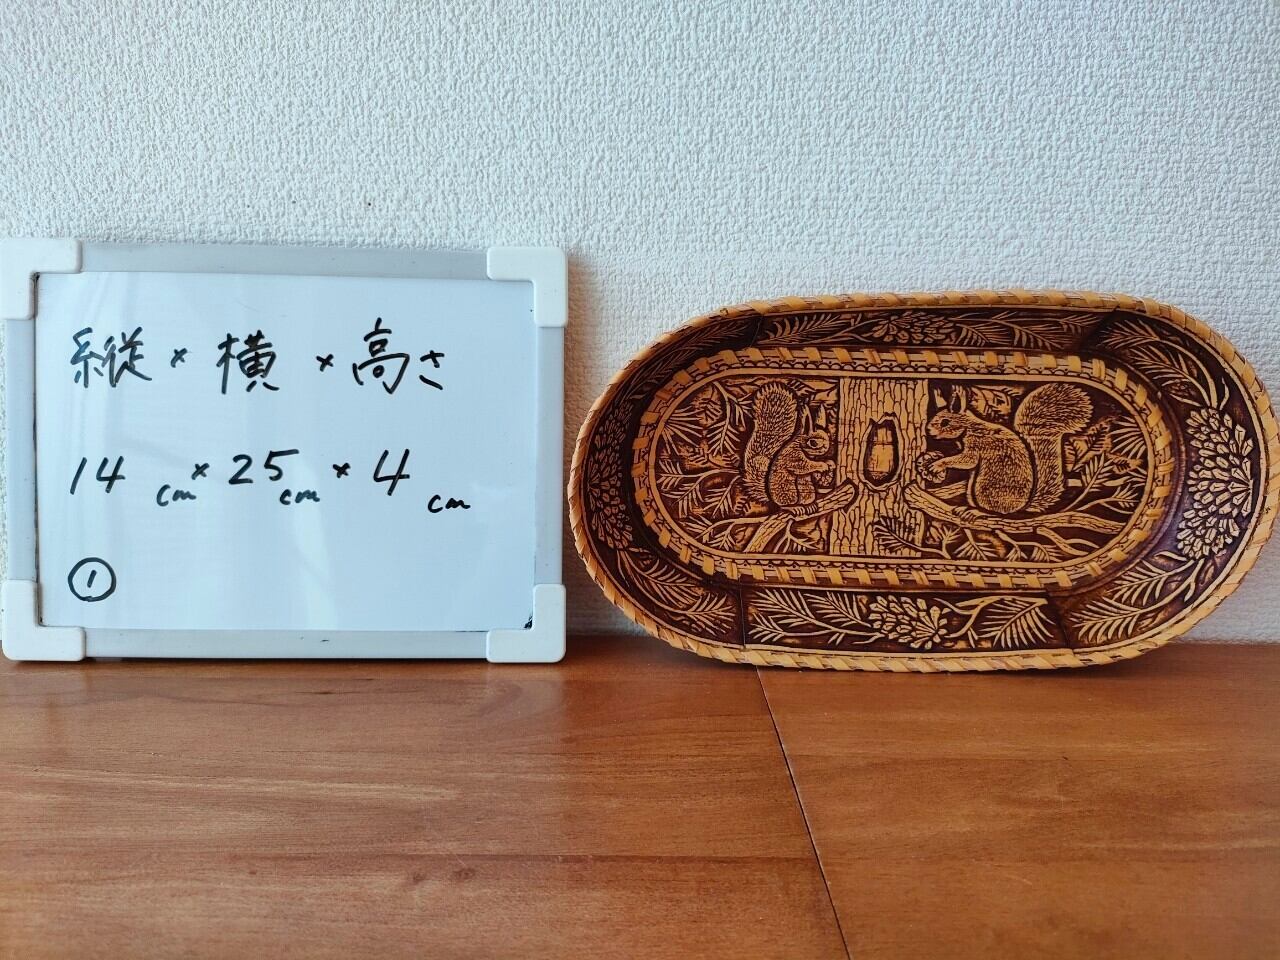 縦×横×高さ
14cm×25cm×4cm
①